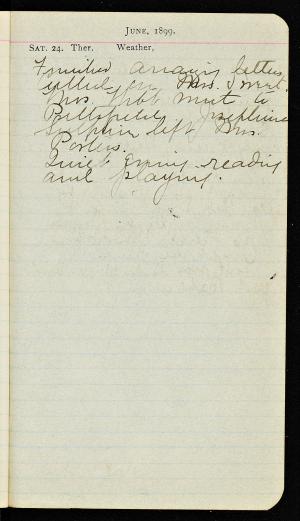 JUNE, 1899.
SAT. 24. Ther. Weather,
Finished arranging letters
called on Mrs.
Mrs went to
Pittsfield Josephine
left Mrs.
Porters.
Quiet evening reading
and playing.